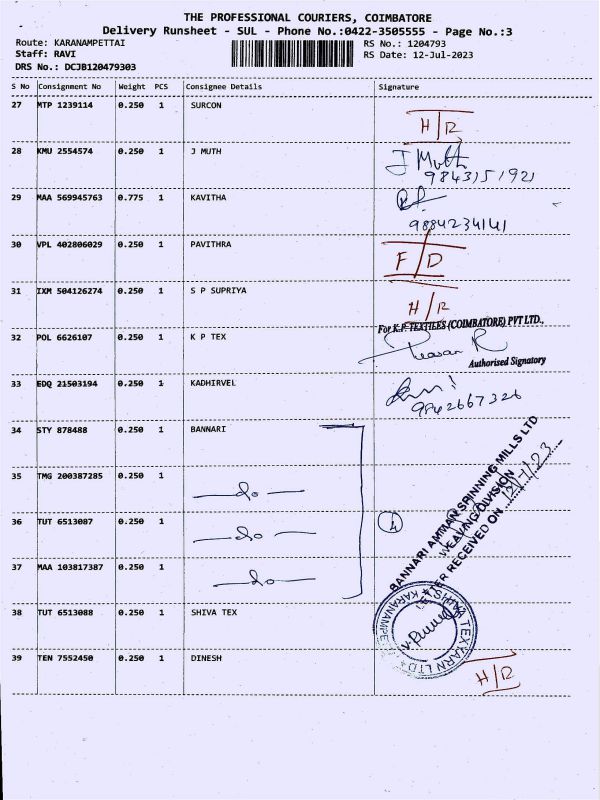 THE PROFESSIONAL COURIERS, COIMBATORE
Delivery Runsheet - SUL - Phone No.:0422-3505555 - Page No.:3
Route: KARANAMPETTAI RS No.: 1204793
Staff: RAVI RS Date: 12-Jul-2023
DRS No.: DCJB120479303
S No Consignment No Weight PCS Consignee Details Signature
27 MTP 1239114 0.250 1 SURCON
H/R
28 KMU 2554574 0.250 1 J MUTH J Muth
9843151921
29 MAA 569945763 0.775 1 KAVITHA
9884234141
30 VPL 402806029 0.250 1 PAVITHRA
F/D
31 IXM 504126274 0.250 1 S P SUPRIYA
H/R
For K.P. TEXTILES (COIMBATORE) PVT LTD.,
32 POL 6626107 0.250 1 K P TEX
Authorised Signatory
33 EDQ 21503194 0.250 1 KADHIRVEL
9842667326
34 STY 878488 0.250 1 BANNARI
35 TMG 200387285 0.250 1
—do—
36 TUT 6513087 0.250 1 4
—do—
37 MAA 103817387 0.250 1
—do—
BANNARI AMMAN SPINNING MILLS LTD
WEAVING DIVISION
LETTER RECEIVED ON 12/7/23
38 TUT 6513088 0.250 1 SHIVA TEX
TEXYARN LTD
39 TEN 7552450 0.250 1 DINESH
H/R